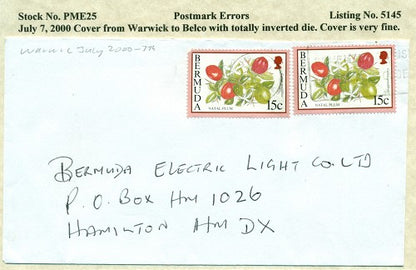 Stock No. PME25 Postmark Errors Listing No. 5145
July 7, 2000 Cover from Warwick to Belco with totally inverted die. Cover is very fine.
WARWICK JULY 2000-7th
BERMUDA
NATAL PLUM
15c
BERMUDA
NATAL PLUM
15c
BERMUDA ELECTRIC LIGHT CO. LTD
P.O. BOX HM 1026
HAMILTON HM DX